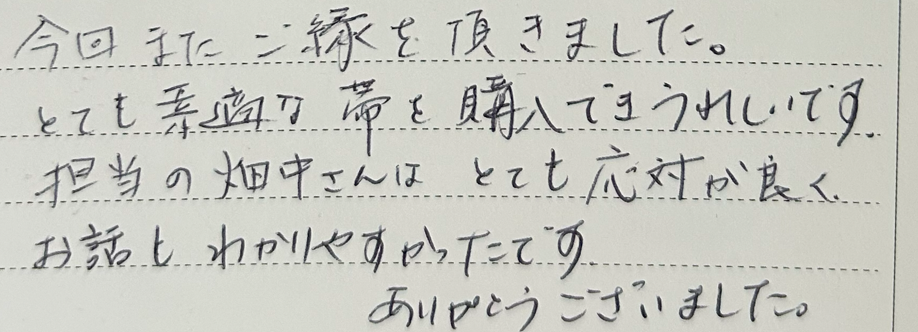 今回またご縁を頂きました。
とても素適な帯を購入できうれしいです.
担当の畑中さんは とても応対が良く、
お話もわかりやすかったです.
ありがとうございました。